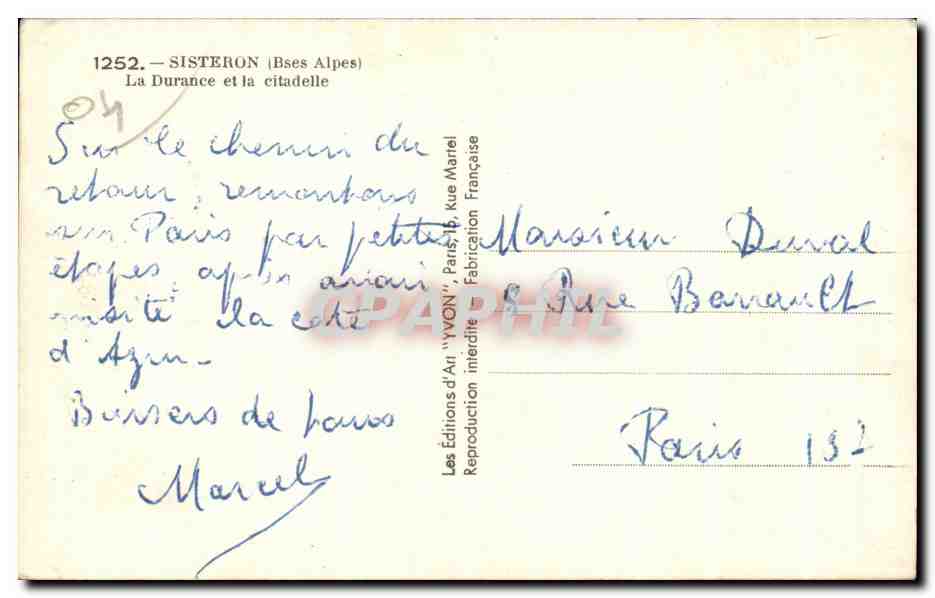 1252. — SISTERON (Bses Alpes)
La Durance et la citadelle
04
Sur le chemin du
retour, remontons
sur Paris par petites
étapes après avoir
visité la côte
d'Azur -
Baisers de tous
Marcel
Les Editions d'Art "YVON", Paris, 15, Rue Martel
Reproduction interdite - Fabrication Française
CPAPHIL
Monsieur Duval
8 Rue Barrault
Paris 13